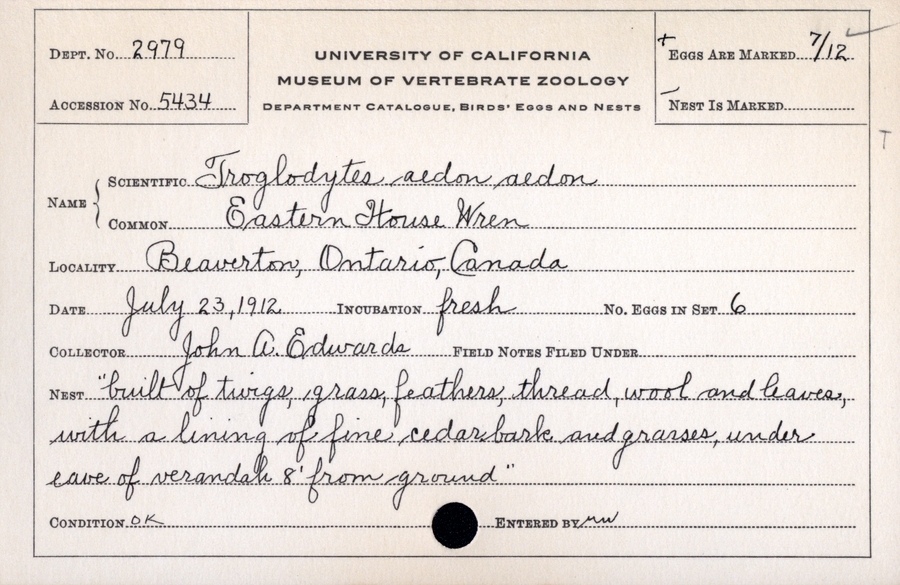 DEPT. No. 2979
ACCESSION No. 5434
UNIVERSITY OF CALIFORNIA
MUSEUM OF VERTEBRATE ZOOLOGY
DEPARTMENT CATALOGUE, BIRDS' EGGS AND NESTS
+ EGGS ARE MARKED 7/12 ✓
– NEST IS MARKED
T
NAME { SCIENTIFIC Troglodytes aedon aedon
COMMON Eastern House Wren
LOCALITY Beaverton, Ontario, Canada
DATE July 23, 1912 INCUBATION fresh No. EGGS IN SET 6
COLLECTOR John A. Edwards FIELD NOTES FILED UNDER
NEST "built of twigs, grass, feathers, thread, wool and leaves,
with a lining of fine cedar bark and grasses, under
eave of verandah 8' from ground"
CONDITION OK ENTERED BY